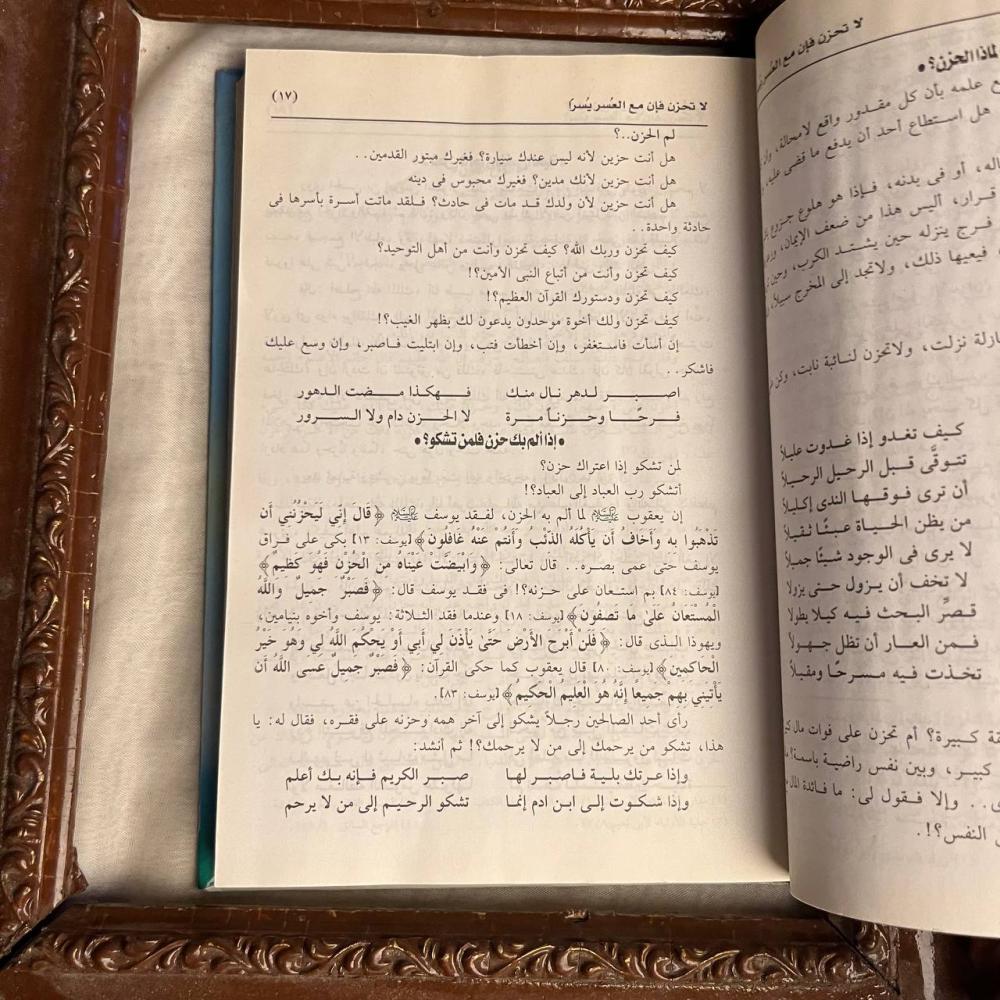 لا تحزن فإن مع العُسر يُسرًا
(١٧)
لم الحزن..؟
هل أنت حزين لأنه ليس عندك سيارة؟ فغيرك مبتور القدمين..
هل أنت حزين لأنك مدين؟ فغيرك محبوس فى دينه
هل أنت حزين لأن ولدك قد مات فى حادث؟ فلقد ماتت أسرة بأسرها فى
حادثة واحدة..
كيف تحزن وربك الله؟ كيف تحزن وأنت من أهل التوحيد؟
كيف تحزن وأنت من أتباع النبى الأمين؟!
كيف تحزن ودستورك القرآن العظيم؟!
كيف تحزن ولك أخوة موحدون يدعون لك بظهر الغيب؟!
إن أسأت فاستغفر، وإن أخطأت فتب، وإن ابتليت فاصبر، وإن وسع عليك
فاشكر..
اصبر لدهر نال منك فهكذا مضت الدهور
فرحًا وحزنًا مرة لا الحزن دام ولا السرور
• إذا ألم بك حزن فلمن تشكو؟ •
لمن تشكو إذا اعتراك حزن؟
أتشكو رب العباد إلى العباد؟!
إن يعقوب ﷺ لما ألم به الحزن، لفقد يوسف ﷺ ﴿قَالَ إِنِّي لَيَحْزُنُنِي أَن
تَذْهَبُوا بِهِ وَأَخَافُ أَن يَأْكُلَهُ الذِّئْبُ وَأَنتُمْ عَنْهُ غَافِلُونَ﴾ [يوسف: ١٣] بكى على فراق
يوسف حتى عمى بصره.. قال تعالى: ﴿وَابْيَضَّتْ عَيْنَاهُ مِنَ الْحُزْنِ فَهُوَ كَظِيمٌ﴾
[يوسف: ٨٤] بم استعان على حزنه؟! فى فقد يوسف قال: ﴿فَصَبْرٌ جَمِيلٌ وَاللَّهُ
الْمُسْتَعَانُ عَلَىٰ مَا تَصِفُونَ﴾ [يوسف: ١٨] وعندما فقد الثلاثة: يوسف وأخوه بنيامين،
ويهوذا الذى قال: ﴿فَلَنْ أَبْرَحَ الأَرْضَ حَتَّىٰ يَأْذَنَ لِي أَبِي أَوْ يَحْكُمَ اللَّهُ لِي وَهُوَ خَيْرُ
الْحَاكِمِينَ﴾ [يوسف: ٨٠] قال يعقوب كما حكى القرآن: ﴿فَصَبْرٌ جَمِيلٌ عَسَى اللَّهُ أَن
يَأْتِيَنِي بِهِمْ جَمِيعًا إِنَّهُ هُوَ الْعَلِيمُ الْحَكِيمُ﴾ [يوسف: ٨٣].
رأى أحد الصالحين رجلاً يشكو إلى آخر همه وحزنه على فقره، فقال له: يا
هذا، تشكو من يرحمك إلى من لا يرحمك؟! ثم أنشد:
وإذا عرتك بلية فاصبر لها صبر الكريم فإنه بك أعلم
وإذا شكوت إلى ابن ادم إنما تشكو الرحيم إلى من لا يرحم
لا تحزن فإن مع العُسر
لماذا الحزن؟ •
علمه بأن كل مقدور واقع لامحالة،
هل استطاع أحد أن يدفع ما قضى عليه
أو فى بدنه، فإذا هو هلوع جزوع
قرار، أليس هذا من ضعف الإيمان،
فرج ينزله حين يشتد الكرب، وحين
فيعيها ذلك، ولاتجد إلى المخرج سبيلاً،
نزلت، ولاتحزن لنائبة نابت، وكن
كيف تغدو إذا غدوت عليلاً
تتوقَّى قبل الرحيل الرحيلاً
أن ترى فوقها الندى إكليلاً
من يظن الحياة عبئًا ثقيلاً
لا يرى فى الوجود شيئًا جميلاً
لا تخف أن يزول حتى يزولا
قصِّر البحث فيه كيلا يطولا
فمن العار أن تظل جهولاً
تخذت فيه مسرحًا ومقيلاً
كبيرة؟ أم تحزن على فوات مال
كبير، وبين نفس راضية باسمة!
.. وإلا فقول لى: ما فائدة المال
النفس؟!.